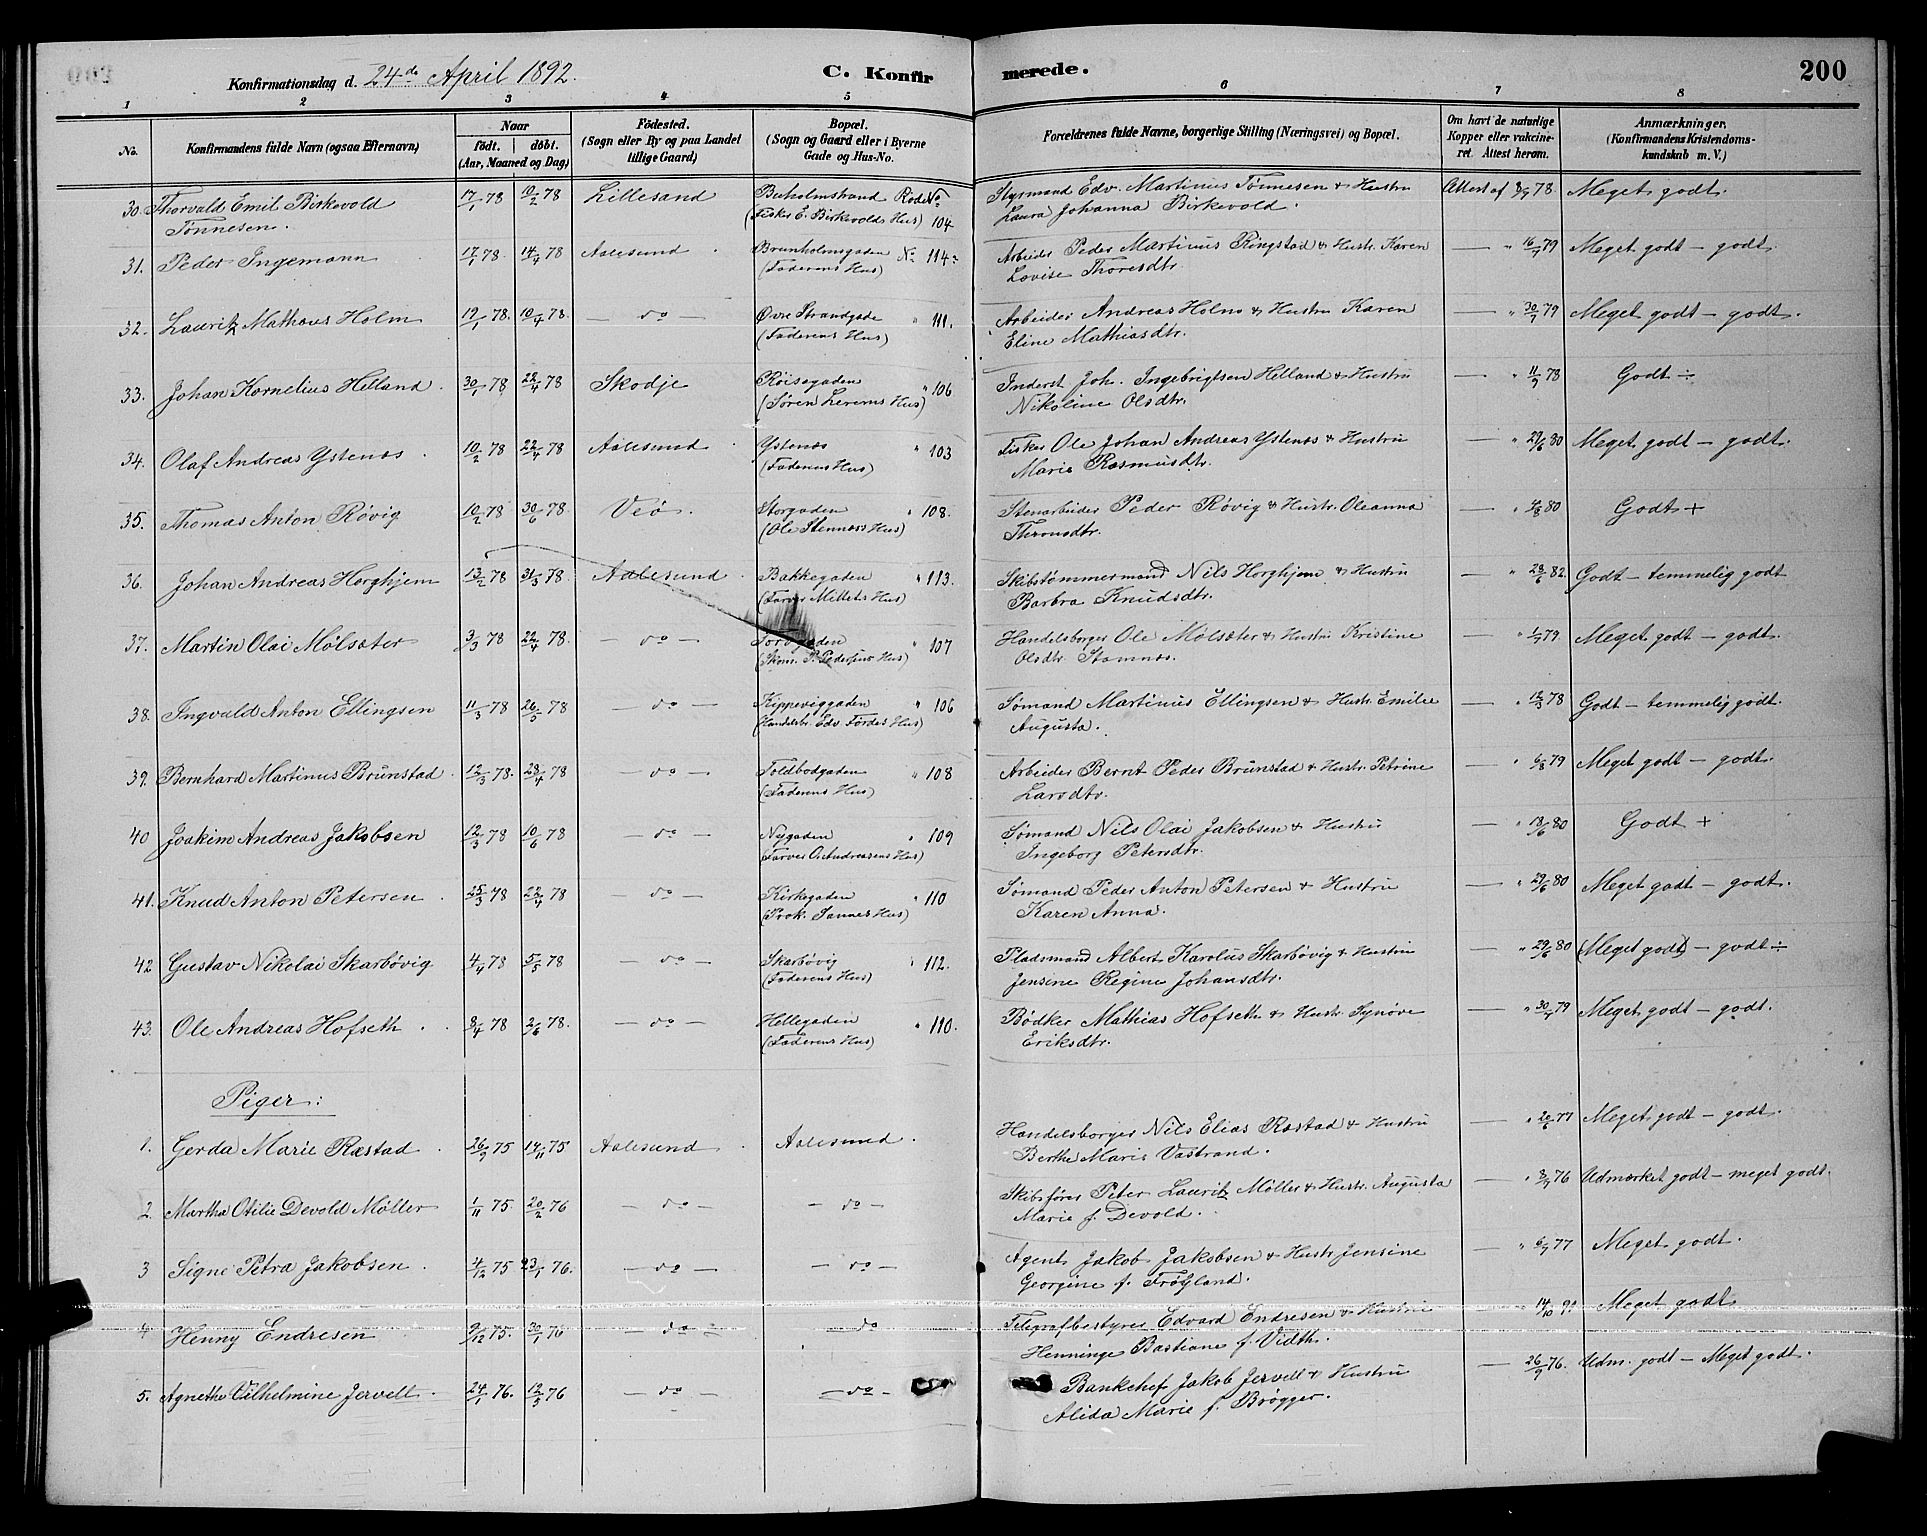 Konfirmationsdag d. 24de April 1892. C. Konfirmerede. 200
1 2 3 4 5 6 7 8
No. Konfirmandens fulde Navn (ogsaa Efternavn) Naar født. døbt. (Aar, Maaned og Dag) Fødested. (Sogn eller By og paa Landet tillige Gaard) Bopæl. (Sogn og Gaard eller i Byerne Gade og Hus-No. Forældrenes fulde Navne, borgerlige Stilling (Næringsvei) og Bopæl. Om havt de naturlige Kopper eller vakcineret. Attest herom. Anmærkninger, (Konfirmandens Kristendomskundskab m. V.)
30. Thorvald Emil Birkevold 17/1 78 10/2 78 Lillesand Buholmstrand Rode No Styrmand Edv. Martinus Tønnesen & Hustru Attest af 8/9 78. Meget godt.
Tønnesen. (Fisker E. Birkevolds Hus) 104 Laura Johanna Birkevold.
31. Peder Ingemann 17/1 78. 14/4 78 Aalesund Brunholmgaden No 114 Arbeider Peder Martinus Ringstad & Hustr. Karen — " 16/7 79 Meget godt – godt.
(Faderens Hus) Lovise Thoresdtr.
32. Lauritz Mathæus Holm 19/1 78. 10/4 78. — do — Øvre Strandgade " 111. Arbeider Andreas Holm & Hustru Karen — " 30/7 79 Meget godt – godt.
(Faderens Hus) Eline Mathiasdtr.
33. Johan Kornelius Helland 30/1 78 22/4 78 Skodje Røisegaden " 106 Inderst Joh. Ingebrigtsen Helland & Hustru — " 11/9 78 Godt ÷
(Søren Lerems Hus) Nikoline Olsdtr.
34. Olaf Andreas Ystenæs 10/2 78 22/4 78 Aalesund Ystenæs " 103 Fisker Ole Johan Andreas Ystenæs & Hustru — " 29/6 80 Meget godt – godt.
(Faderens Hus) Marie Rasmusdtr.
35. Thomas Anton Røvig 10/2 78 30/6 78 Veø. Storgaden " 108. Stenarbeider Peder Røvig & Hustr. Oleanna — 80 Godt +
(Ole Stennæss Hus)
36. Johan Andreas Horghjem 13/2 78 31/3 78. Aalesund Bakkegaden " 113. Skibstømmermand Nils Horghjem & Hustru — " 23/6 82. Godt – temmelig godt
(Farver Millets Hus) Barbra Knudsdtr.
37. Martin Olai Mølsæter 3/3 78 22/4 78. — do — " 107 Handelsborger Ole Mølsæter & Hustru Kristine — " 1/7 79 Meget godt – godt.
(Skom. P. Pedersens Hus) Olsdtr. Stamnæs.
38. Ingvald Anton Ellingsen 11/3 78 26/5 78 — do — Kippeviggaden " 106 Sømand Martinus Ellingsen & Hustr. Emilie — " 78 Godt – temmelig godt.
(Handelsb. Edv. Førdes Hus) Augusta.
39. Bernhard Martinus Brunstad 12/3 78. 28/4 78 — do — Toldbodgaden " 108 Arbeider Bernt Peder Brunstad & Hustr. Petrine — " 6/8 79 Meget godt – godt.
(Faderens Hus) Larsdtr.
40 Joakim Andreas Jakobsen 12/3 78 10/6 78 — do — Nygaden " 109 Sømand Nils Olai Jakobsen & Hustru — " 18/6 80 Godt +
(Farver O. Andreasens Hus) Ingeborg Petersdtr.
41. Knud Anton Petersen 25/3 78 22/4 78 — do — Kirkegaden " 110 Sømand Peder Anton Petersen & Hustru — " 29/6 80 Meget godt – godt.
(Prok. Sannes Hus) Karen Anna.
42 Gustav Nikolai Skarbøvig 4/4 78 5/5 78 — do — Skarbøvig " 112. Pladsmand Albert Karolus Skarbøvig & Hustru — " 29/6 80 (Meget godt) – godt ÷
(Faderens Hus) Jensine Regine Johansdtr.
43. Ole Andreas Hofseth 8/4 78 2/6 78. — do — Hellegaden " 110. Bødker Mathias Hofseth & Hustr. Synøve — " 30/7 79 Meget godt – godt.
(Faderens Hus) Eriksdtr.
Piger:
1. Gerda Marie Rastad 26/9 75 14/11 75 Aalesund Aalesund. Handelsborger Nils Elias Rastad & Hustru — " 20/6 77 Meget godt – godt.
Berthe Marie Vastrand.
2. Martha Otilie Devold Møller 1/11 75. 20/2 76 — do — — do — Skibsfører Peter Lauritz Møller & Hustr. Augusta — " 3/7 76 Udmærket godt – meget godt.
Marie f. Devold.
3 Signe Petra Jakobsen 4/12 75 23/1 76. — do — — do — Agent Jakob Jakobsen & Hustr. Jensine — " 6/7 77 Meget godt.
Georgine f. Frøyland.
4 Henny Endresen 9/12 75. 30/1 76 — do — — do Telegrafbestyrer Edvard Endresen & Hustru — 14/10 Meget godt
Henninge Bastiane f. Vidth.
5. Agnethe Vilhelmine Jervell 24/1 76. 12/3 76 — do — — do — Bankchef Jakob Jervell & Hustru — 26/9 76. Udm. godt – Meget godt.
Alida Marie f. Brøgger.